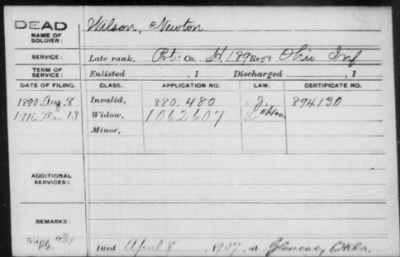 DEAD
NAME OF SOLDIER: Wilson, Newton
SERVICE: Late rank, Pvt. Co. H, 189 Reg't Ohio Inf
TERM OF SERVICE: Enlisted , 1 Discharged , 1
DATE OF FILING. CLASS. APPLICATION NO. LAW. CERTIFICATE NO.
1890 Aug. 8 Invalid, 880.480 J. 894130
1916 13 Widow, 1062607
Minor,
ADDITIONAL SERVICES:
REMARKS:
Died April 8, 1907, at Okla.